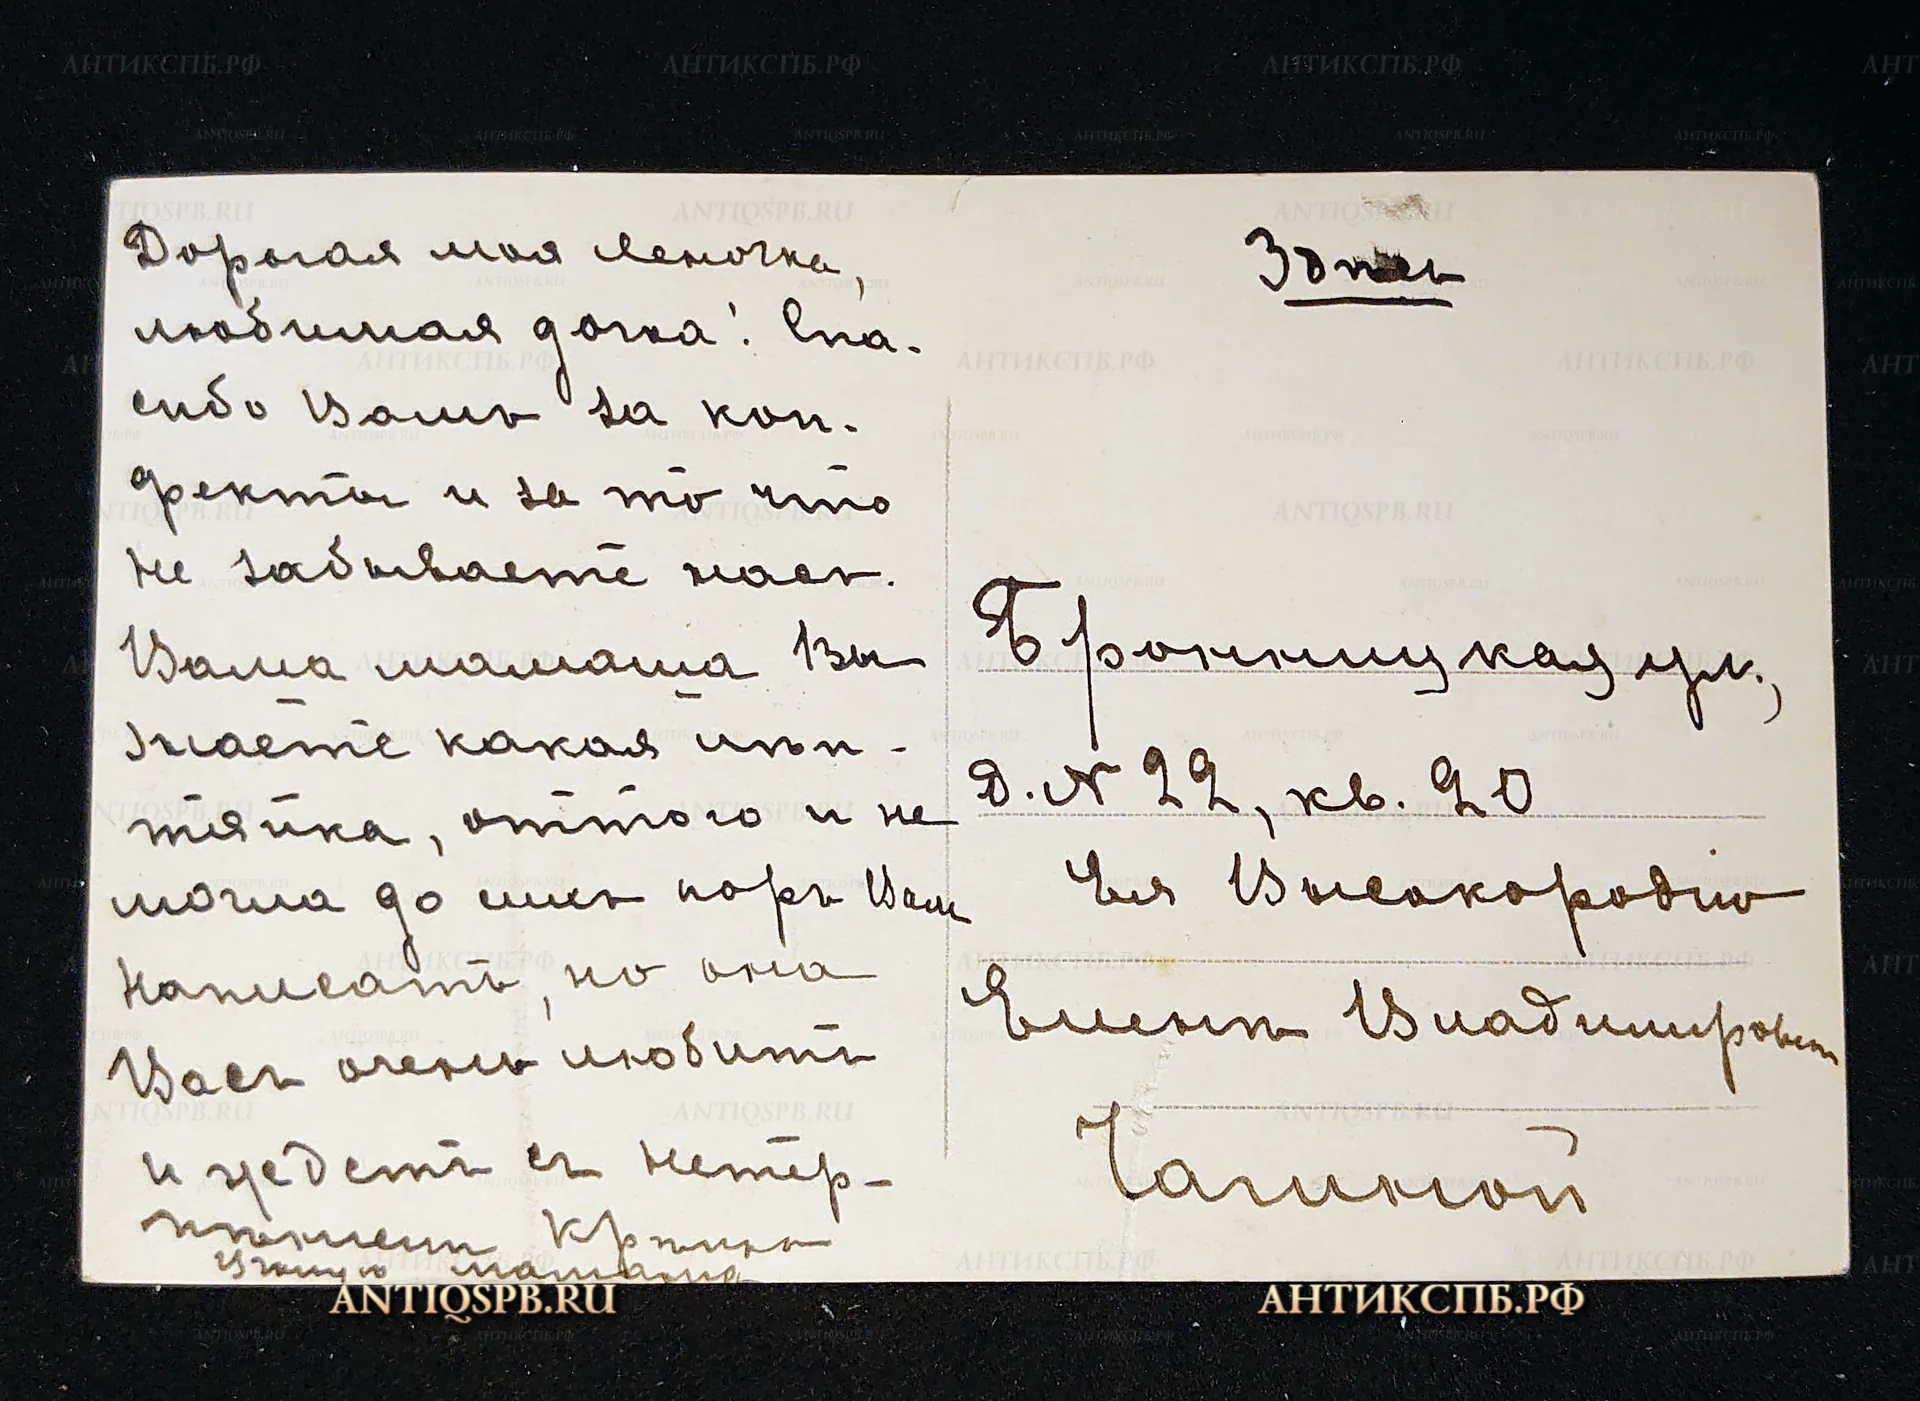 Дорогая моя Леночка,
любимая дочка! Спа-
сибо Вамъ за кон-
фекты и за то что
не забываете насъ.
Ваша мамаша Вы
знаете какая лѣн-
тяйка, оттого и не
могла до сихъ поръ Вам
написать, но она
Васъ очень любитъ
и ждетъ съ нетер-
пѣнiем Крѣпко
мамаша
Здѣсь
Бронницкая ул.,
д. N 22, кв. 20
Ея Высокородiю
Еленѣ Владимировнѣ
Чагиной
ANTIQSPB.RU
АНТИКСПБ.РФ